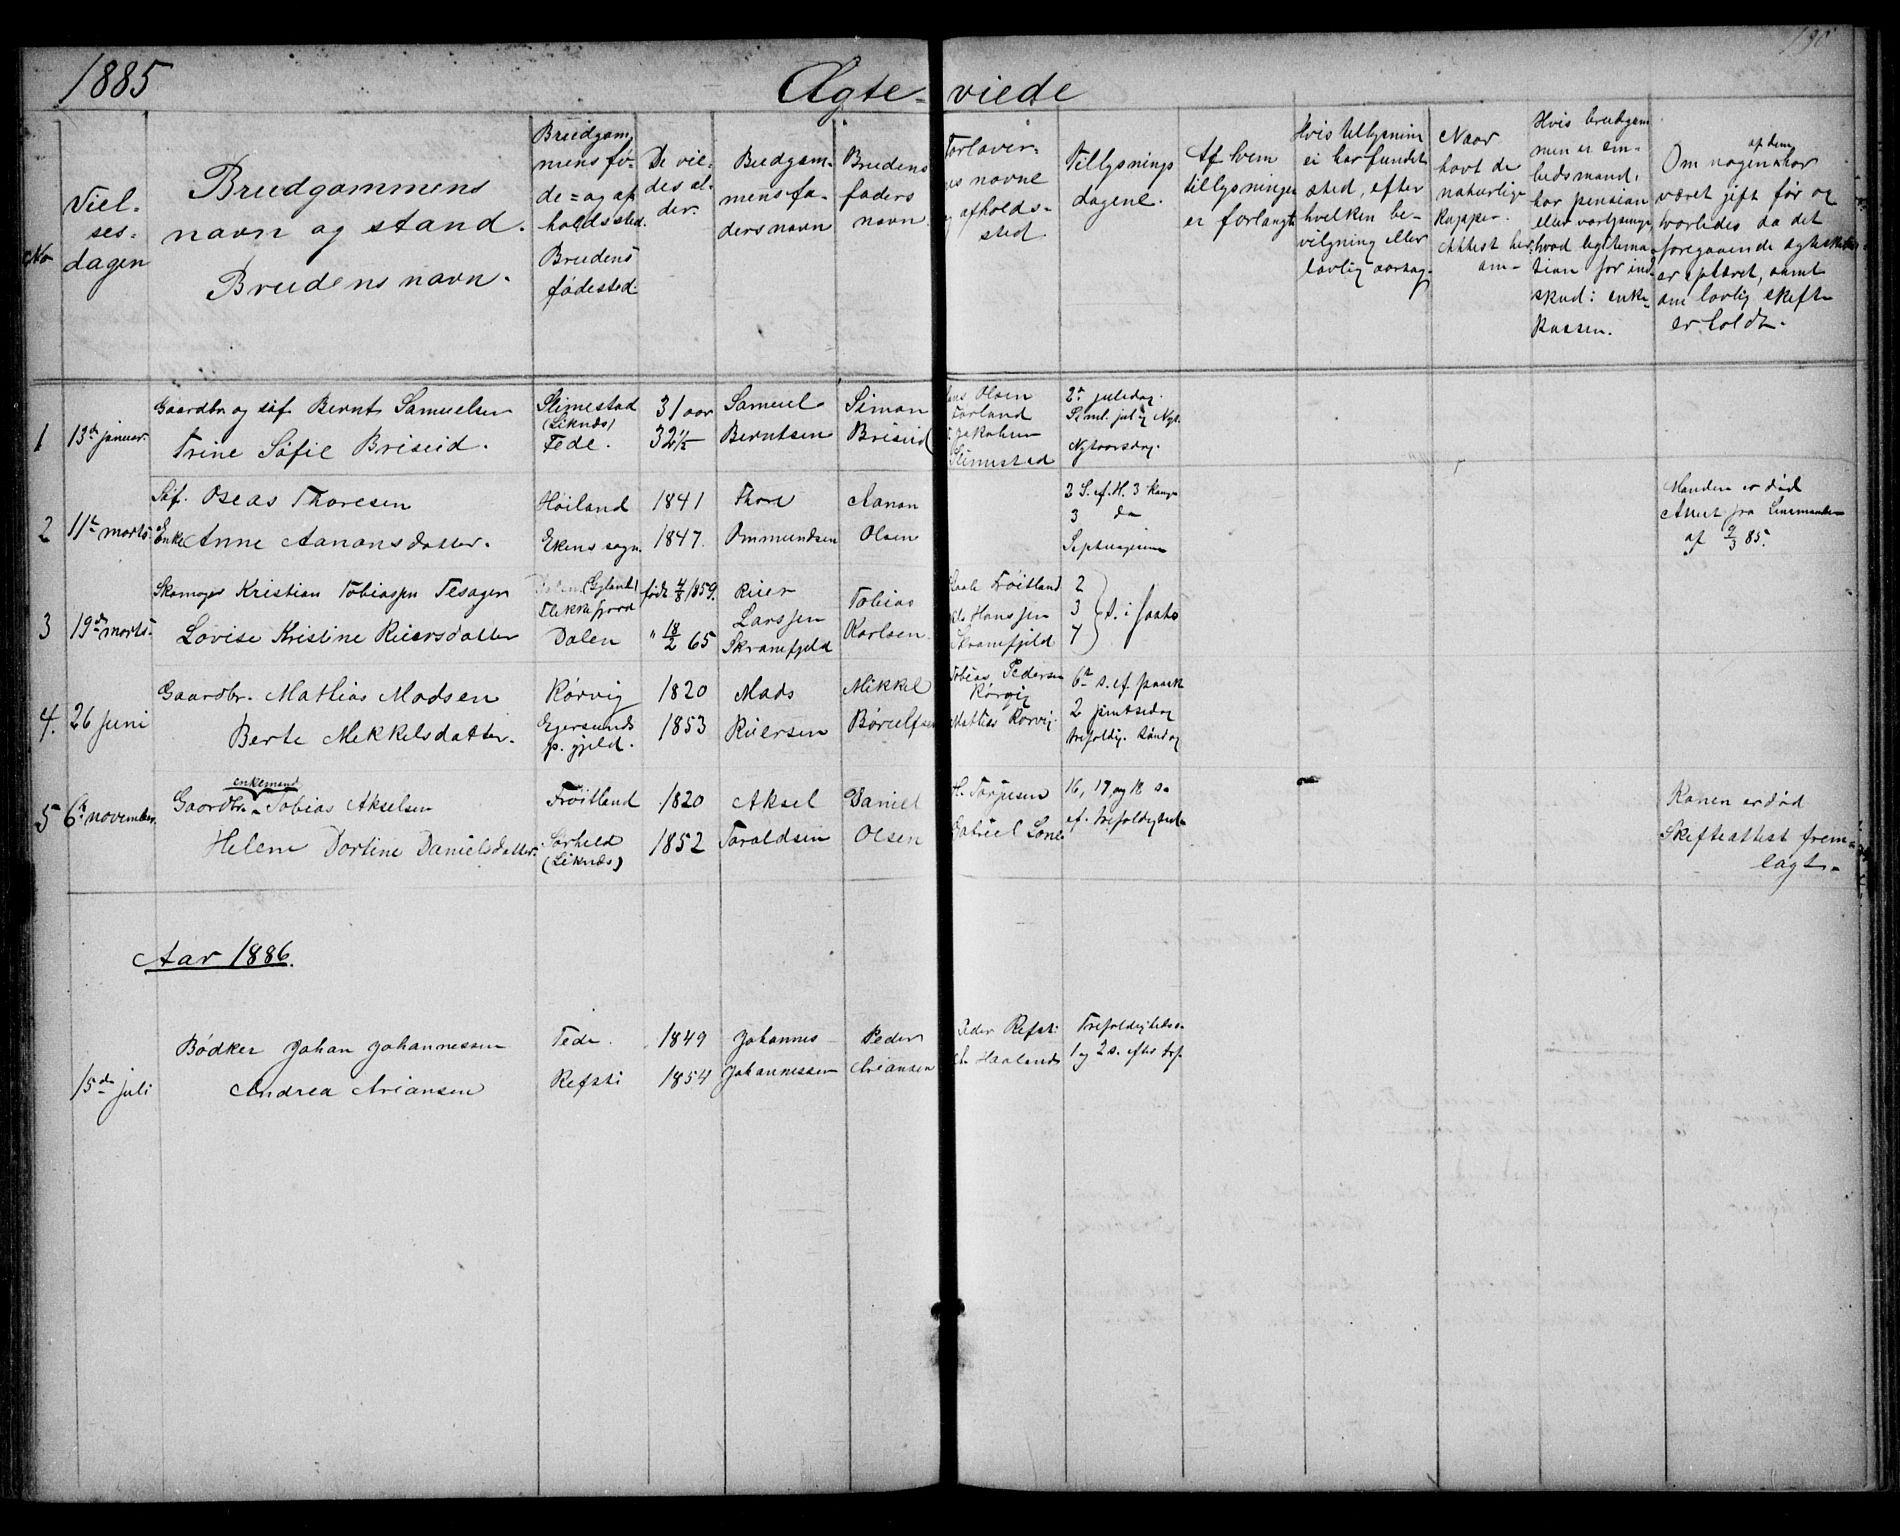 1885
Ægte- viede
No
Viel-
ses-
dagen
Brudgammens
navn og stand.
Brudens navn.
Brudgam
mens fø-
de = og op
holdssted.
Brudens
fødested.
De vie-
des al-
der.
Brudgam-
mens fa-
ders navn
Brudens
faders
navn
Forlover-
nes navne
og afholds-
sted.
Tillysnings
dagene.
Af hvem
tillysningen
er forlangt
Hvis tillysning
ei har fundet
sted, efter
hvilken be-
vilgning eller
lovlig aarsag.
Naar
havt de
naturlige
kopper.
Attest her
om-
Hvis brudgam
men er em-
bedsmand,
har pension
hvad legitima-
tion for ind-
skud i enke-
kassen.
Om nogen af dem har
været gift før og
hvorledes da det
foregaaende ægteskab
er opløret, samt
om lovlig skifte
er holdt.
1
13de januar.
Gaardbr og søf. Bernt Samuelsen
Trine Sofie Briseid.
Slimestad
(Liknæs)
Fede.
31 aar
32½
Samuel
Berntsen
Simon
Briseid
Olsen
Forland
Jakobsen
Slimestad
2n juledag.
Nytaarsdag.
2
11te marts.
Søf. Oseas Thoresen
Enke Anne Aanonsdatter.
Høiland
Ekens sogn.
1841
1847.
Thore
Ommundsen
Aanon
Olsen
2 S. ef. H. 3 Kong
3 do
Septuagesima
Manden er død
Attest fra Lensmanden
af 9/3 85.
3
19de marts.
Skomager Kristian Tobiassen Tesager
Lovise Kristine Reiersdatter
(Gyland)
Flekkefjord
Dalen
født 4/8 1859.
" 18/2 65
Reier
Larssen
Skramfjeld
Tobias
Karlsen
Frøitland
Hanssen
Skramfjeld
2
3 s. i faste
4
4.
26 juni
Gaardbr. Mathias Madsen
Berte Mekkelsdatter.
Rørvig
Egersunds
p. gjeld.
1820
1853
Mads
Reiersen
Mikkel
Tobias Pedersen
Rørvig
Mathias Rørvig.
6te s. ef. paask
2 pintsedag
trefoldig. søndag
5
6te november.
enkemand
Gaardbr. Tobias Akselsen
Helene Dortine Danielsdatter.
Frøitland
Sørheld
(Liknæs)
1820
1852
Aksel
Taraldsen
Daniel
Olsen
H. Torjesen
Gabriel Lone
16, 17, og 18 s.
ef. trefoldighed
Konen er død
Skifteattest frem-
lagt.
Aar 1886.
15de juli
Bødker Johan Johannessen
Andrea Ariansen
Fede.
Refsti
1849
1854
Johannes
Johannessen
Peder
Ariansen
Peder Refsti
Haaland
Trefoldigheds s.
1 og 2 s. efter tref.